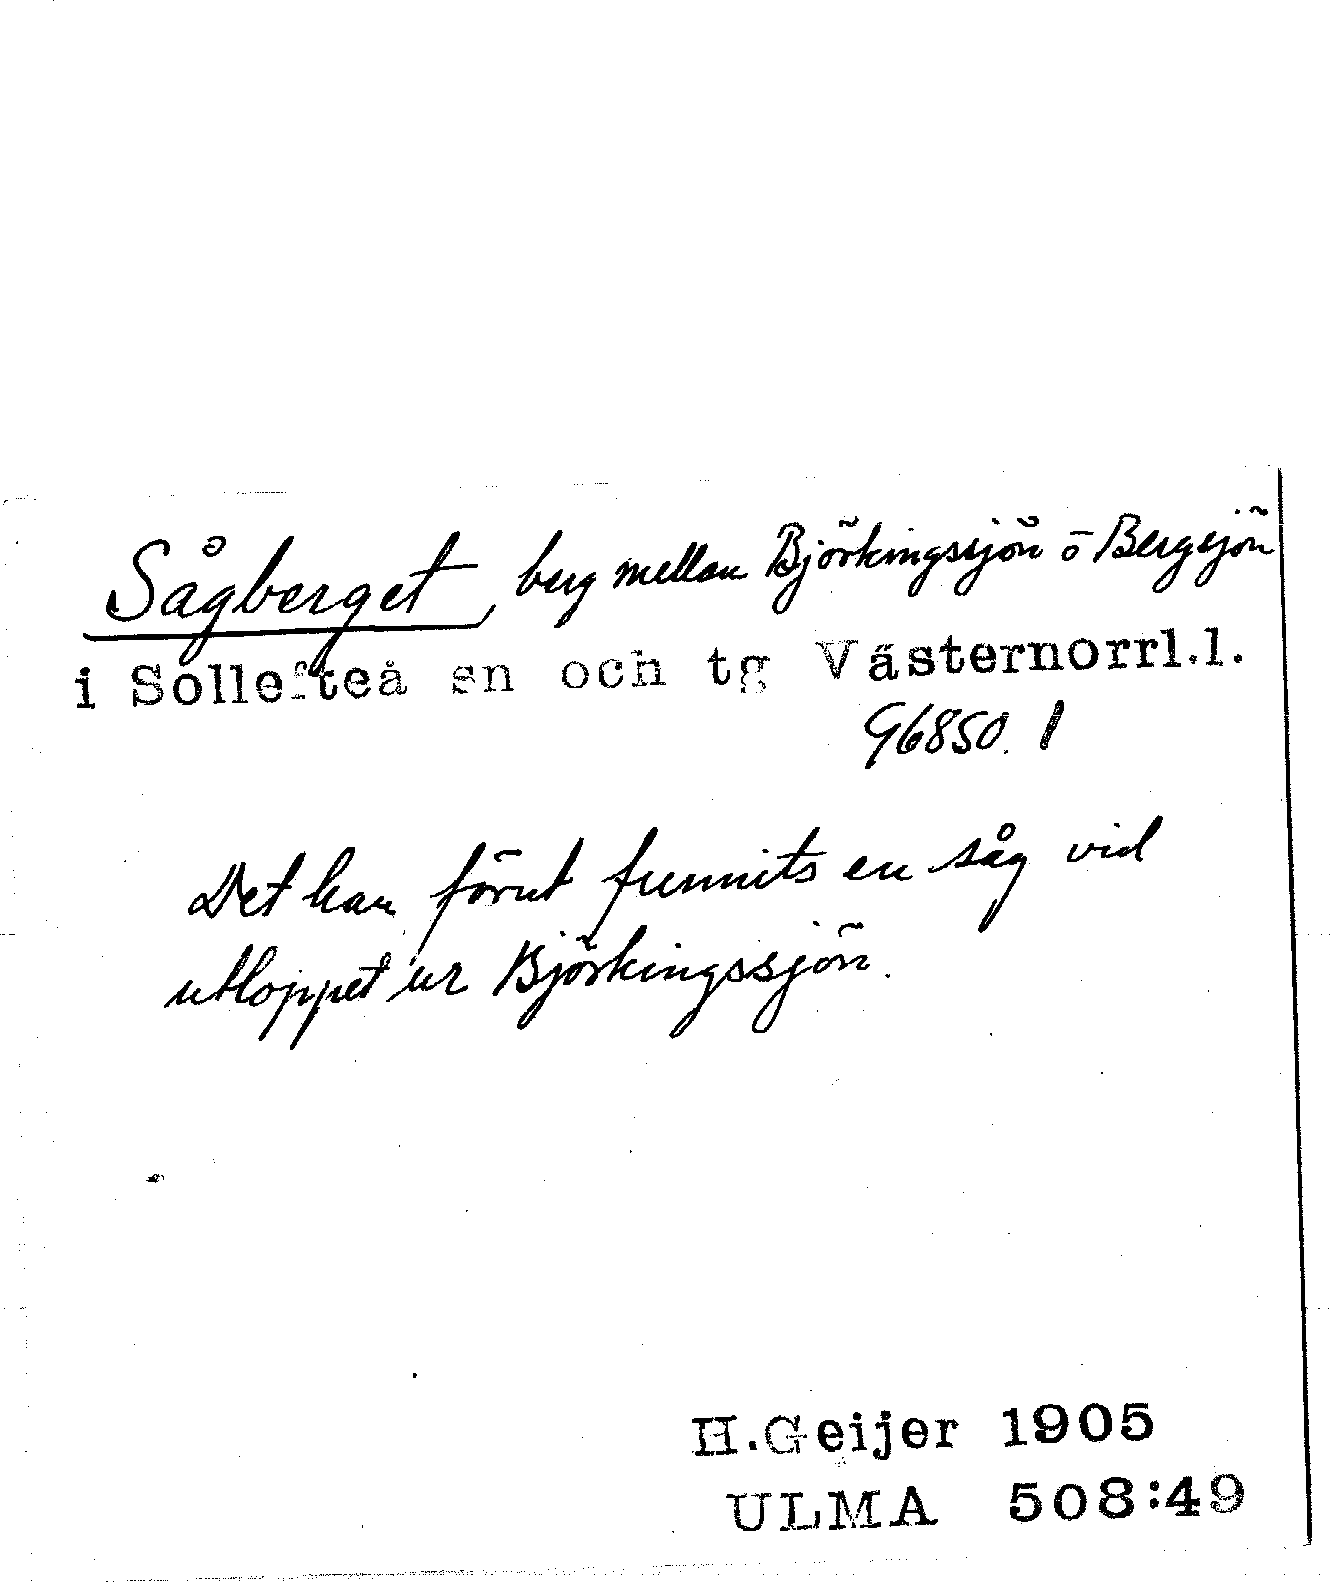 Sågberget, berg mellan Björkingssjön o Bergsjön
i Sollefteå sn och tg Västernorrl.l.
G6850. 1
Det har förut funnits en såg vid
utloppet ur Björkingssjön.
H.Geijer 1905
ULMA 508:49